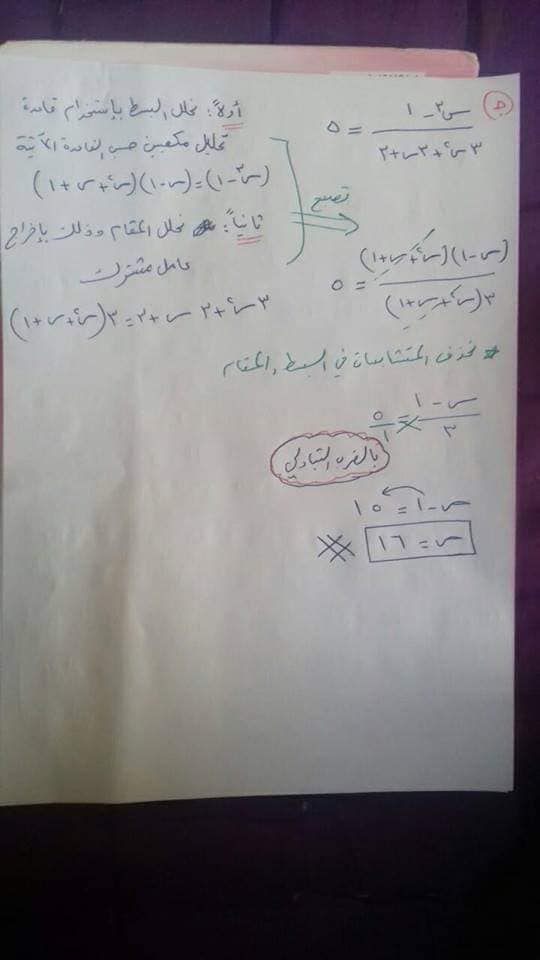 جـ) (س٣ - ١) / (٣س٢ + ٣س + ٣) = ٥
أولاً: نحلل البسط بإستخدام قاعدة
تحليل مكعبين حسب القاعدة الآتية
(س٣ - ١) = (س - ١)(س٢ + س + ١)
ثانياً: نحلل المقام وذلك بإخراج
عامل مشترك
٣س٢ + ٣س + ٣ = ٣(س٢ + س + ١)
تصبح
(س - ١)(س٢ + س + ١) / ٣(س٢ + س + ١) = ٥
* نحذف المتشابهات في البسط والمقام
(س - ١) / ٣ = ٥ / ١
بالضرب التبادلي
س - ١ = ١٥
س = ١٦